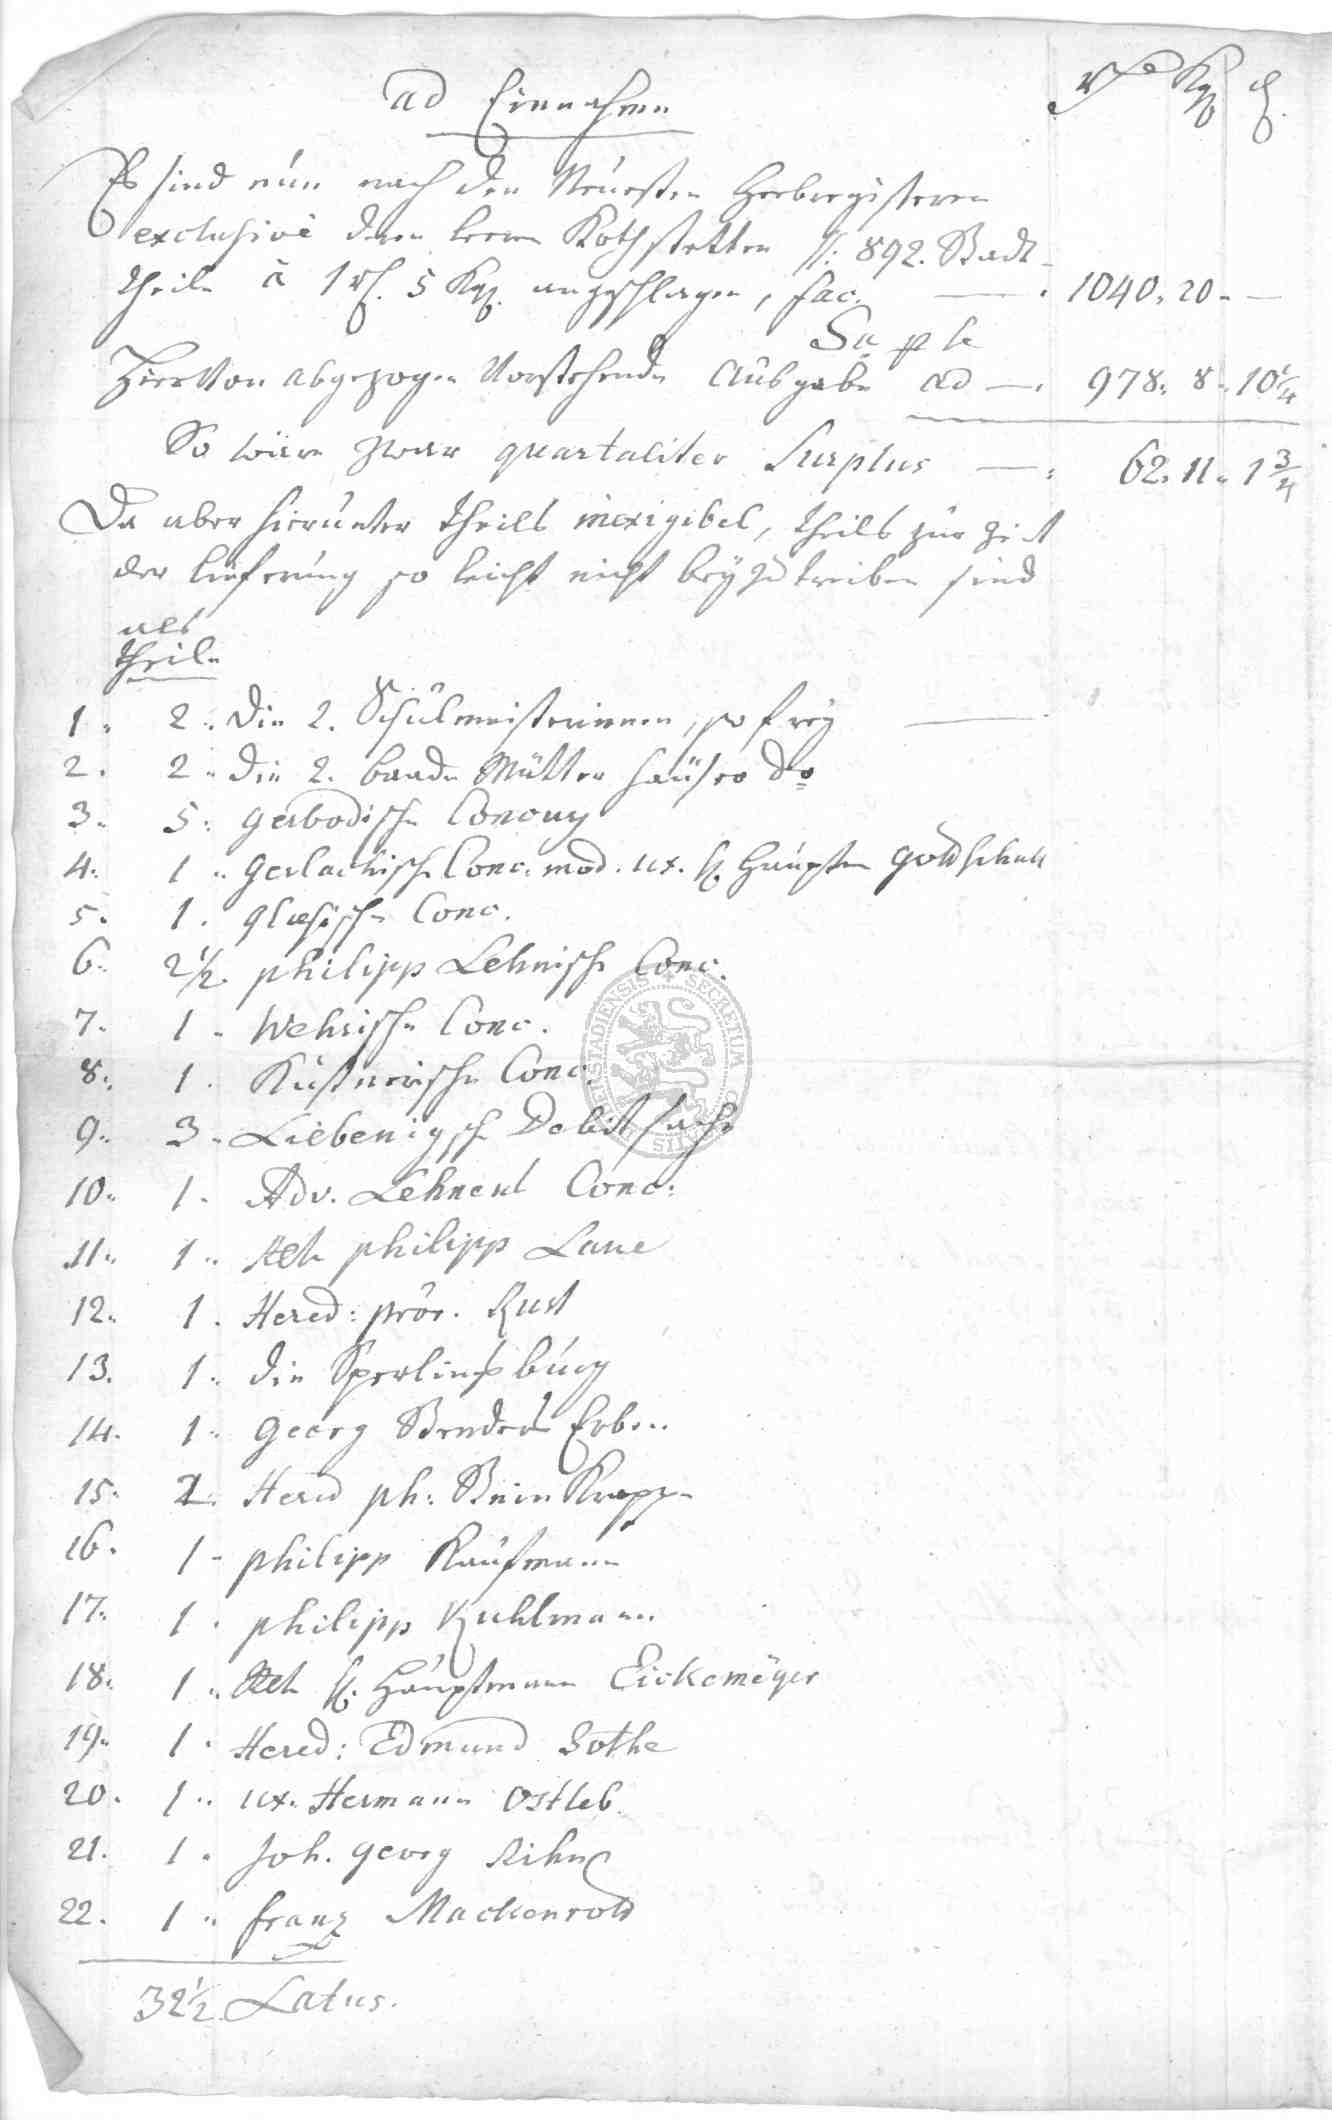 ad Einnahme
rthl Kgr ₰
Es sind nun nach den Neuesten Heebregisteren
exclusive deren leeren Kothstetten //: 892. Stadt-
theile à 1 rf. 5 Kgr. angeschlagen, fac. — 1040. 20. —
Hiervon abgezogen Vorstehende Ausgabe ad — 978. 8. 10 1/4
So wäre zwar quartaliter Surplus — 62. 11. 1 3/4
Da aber hierunter theils inexigibel, theils zur Zeit
der lieferung so leicht nicht beyzutreiben sind
als
theile
1. 2. die 2. Schulmeisterinnen, so frey —
2. 2. die 2. baade Mütter häuser do
3. 5. gerbodische Concurs
4. 1. gerlachische Conc. mod. ux. H. Hauptm gottschalk
5. 1. glæsische Conc.
6. 2 1/2. philipp Lehnische Conc.
7. 1. Wehrische Conc.
8. 1. Küstnerische Conc.
9. 3. Liebenigsche Debitsache
10. 1. Adv. Lehnert Conc.
11. 1. Rel. philipp Laue
12. 1. Hered: prör. Rust
13. 1. die Sperlingsburg
14. 1. georg Benders Erben
15. 2. Hered ph: Steinknapp
16. 1. philipp Kaufmann
17. 1. philipp Kuhlmann
18. 1. Rel. H. Hauptmann Eickemeyer
19. 1. Hered: Edmund Bothe
20. 1. ux. Hermann Ostleb
21. 1. Joh. georg Rihn
22. 1. franz Mackenrodt
32 1/2. Latus.
SECRETUM